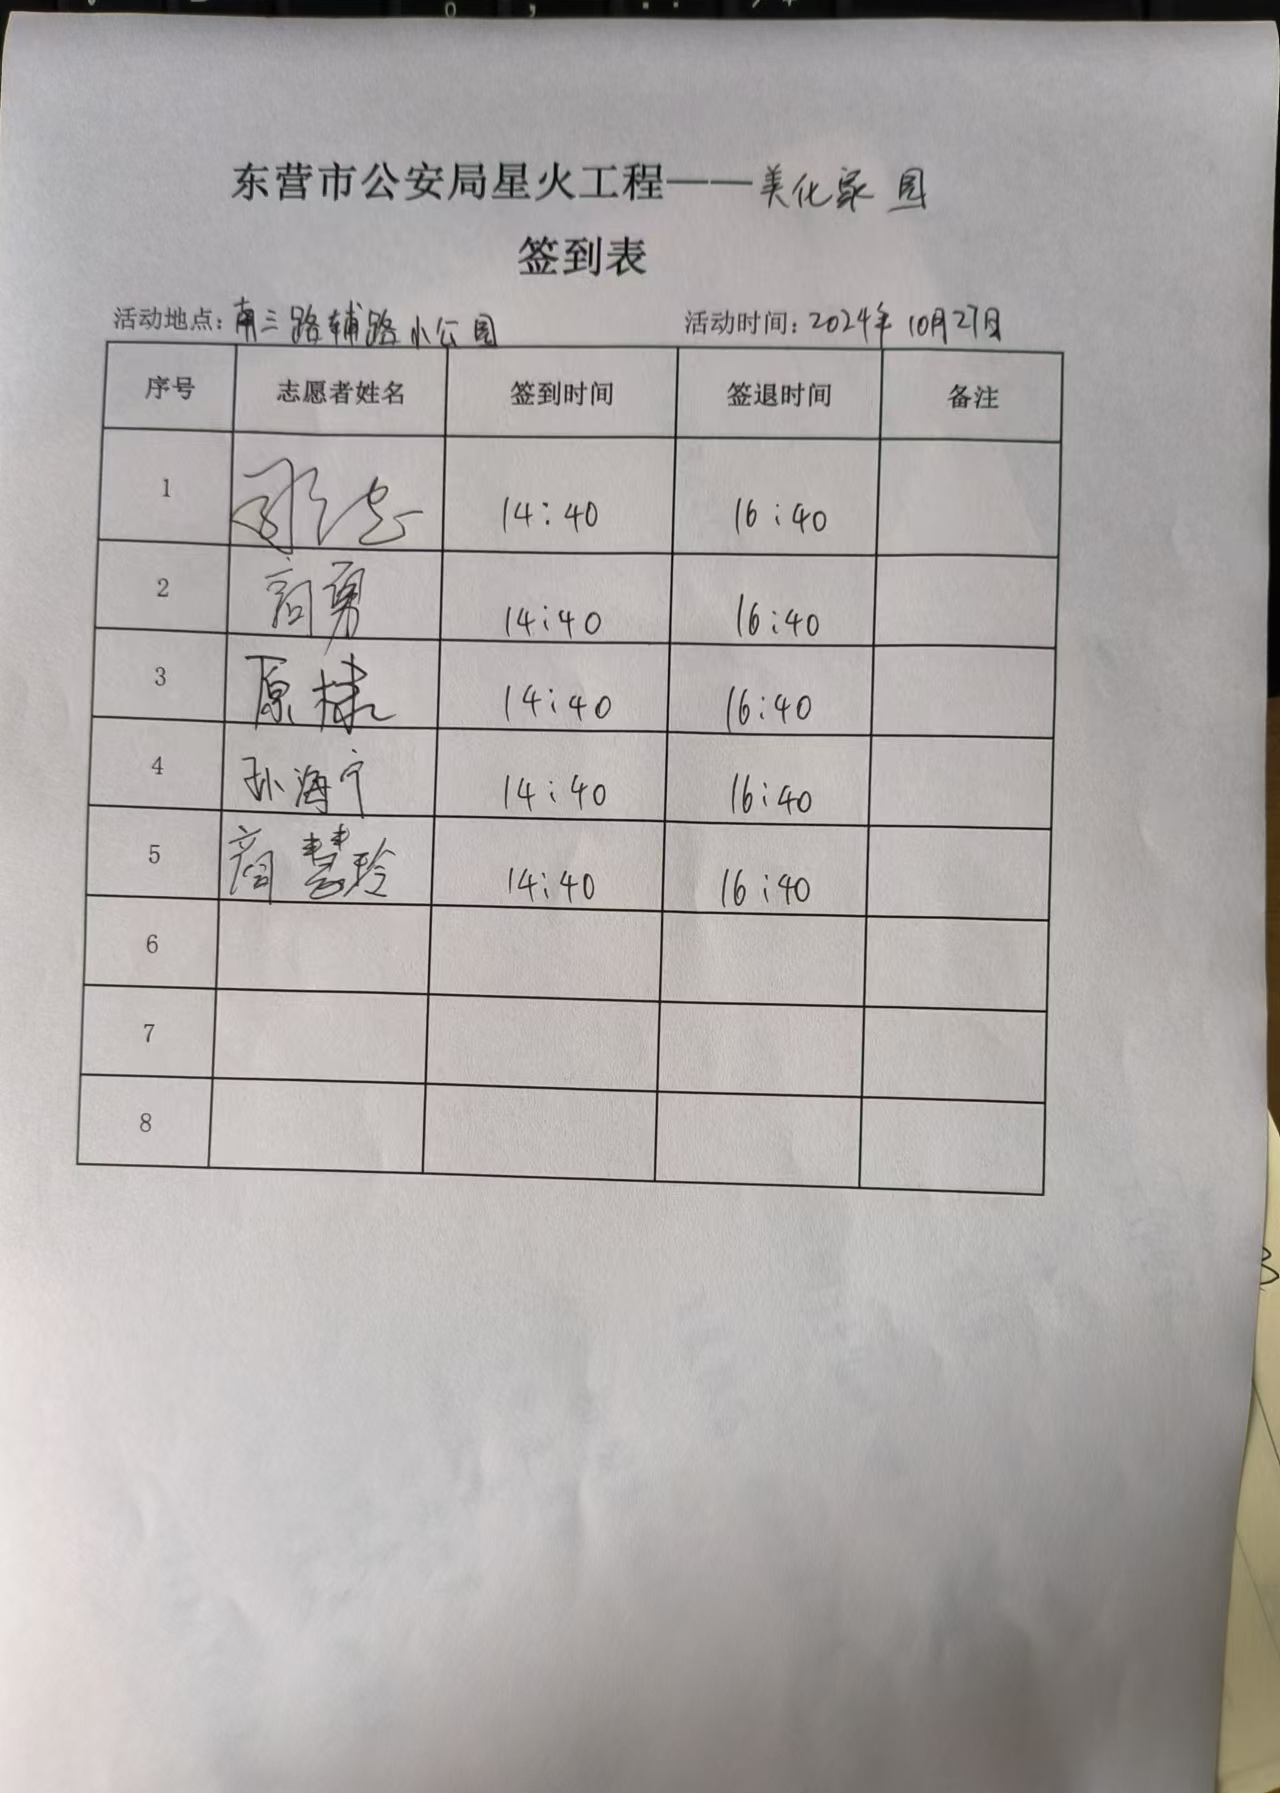 东营市公安局星火工程——美化家园
签到表
活动地点：南三路辅路小公园 活动时间：2024年10月27日
序号 志愿者姓名 签到时间 签退时间 备注
1 14:40 16:40
2 商勇 14:40 16:40
3 原棣 14:40 16:40
4 孙海宁 14:40 16:40
5 商慧玲 14:40 16:40
6
7
8